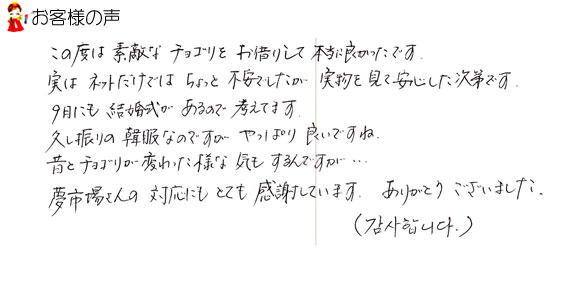 お客様の声
この度は 素敵な チョゴリを お借りして 本当に良かったです.
実は ネットだけでは ちょっと 不安でしたが 実物を見て安心した次第です.
9月にも 結婚式が あるので 考えてます.
久し振りの 韓服なのですが やっぱり 良いですね.
昔とチョゴリが変わった様な 気も するんですが…
夢市場さんの 対応にもとても 感謝しています. ありがとうございました.
(감사합니다.)